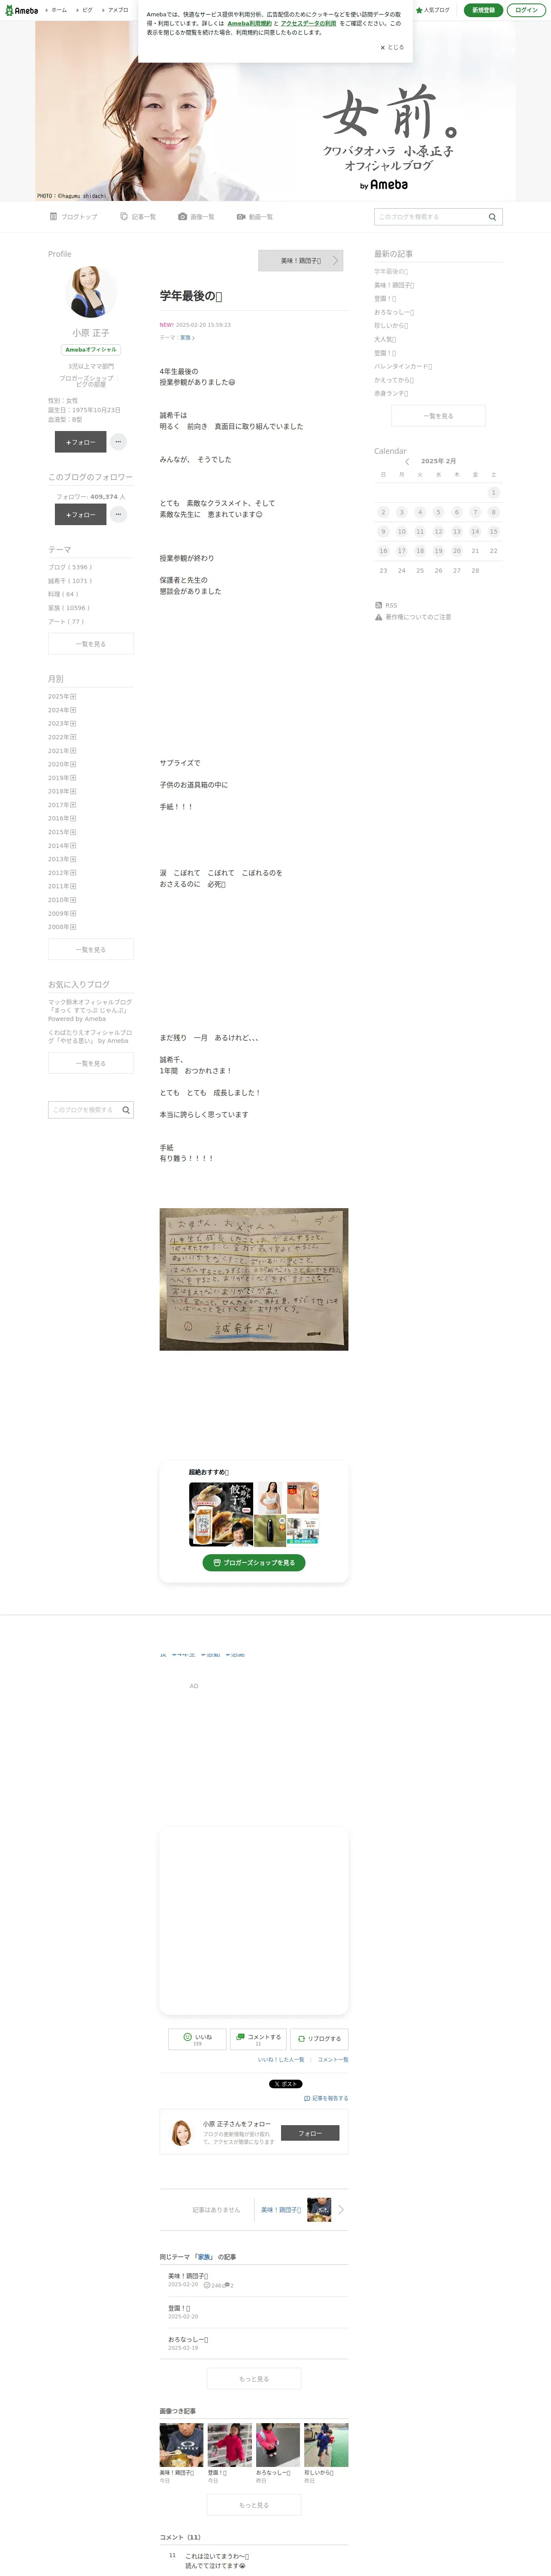 Ameba
ホーム
ピグ
アメブロ
Amebaでは、快適なサービス提供や利用分析、広告配信のためにクッキーなどを使い訪問データの取
得・利用しています。詳しくは Ameba利用規約 と アクセスデータの利用 をご確認ください。この
表示を閉じるか閲覧を続けた場合、利用規約に同意したものとします。
× とじる
人気ブログ
新規登録
ログイン
女前。
クワバタオハラ 小原正子
オフィシャルブログ
by Ameba
PHOTO：©hagumu shidachi
ブログトップ
記事一覧
画像一覧
動画一覧
このブログを検索する
Profile
小原 正子
Amebaオフィシャル
3児以上ママ部門
ブロガーズショップ
ピグの部屋
性別：女性
誕生日：1975年10月23日
血液型：B型
+フォロー
このブログのフォロワー
フォロワー: 409,374 人
+フォロー
テーマ
ブログ ( 5396 )
誠希千 ( 1071 )
料理 ( 64 )
家族 ( 10596 )
アート ( 77 )
一覧を見る
月別
2025年
2024年
2023年
2022年
2021年
2020年
2019年
2018年
2017年
2016年
2015年
2014年
2013年
2012年
2011年
2010年
2009年
2008年
一覧を見る
お気に入りブログ
マック鈴木オフィシャルブログ
「まっく すてっぷ じゃんぷ」
Powered by Ameba
くわばたりえオフィシャルブロ
グ「やせる思い」 by Ameba
一覧を見る
このブログを検索する
美味！鶏団子
学年最後の
NEW! 2025-02-20 15:59:23
テーマ：家族
4年生最後の
授業参観がありました😃
誠希千は
明るく 前向き 真面目に取り組んでいました
みんなが、 そうでした
とても 素敵なクラスメイト、そして
素敵な先生に 恵まれています😊
授業参観が終わり
保護者と先生の
懇談会がありました
サプライズで
子供のお道具箱の中に
手紙！！！
涙 こぼれて こぼれて こぼれるのを
おさえるのに 必死
まだ残り 一月 あるけれど、、、
誠希千、
1年間 おつかれさま！
とても とても 成長しました！
本当に誇らしく思っています
手紙
有り難う！！！！
誠希千より
超絶おすすめ
ブロガーズショップを見る
AD
いいね
コメントする
11
リブログする
いいね！した人一覧
コメント一覧
ポスト
記事を報告する
小原 正子さんをフォロー
ブログの更新情報が受け取れ
て、アクセスが簡単になります
フォロー
記事はありません
美味！鶏団子
同じテーマ 「家族」 の記事
美味！鶏団子
2025-02-20 246 2
登園！
2025-02-20
おろなっしー
2025-02-19
もっと見る
画像つき記事
美味！鶏団子
今日
登園！
今日
おろなっしー
昨日
珍しいから
昨日
もっと見る
コメント（11）
11
これは泣いてまうわ〜
読んでて泣けてます😭
最新の記事
学年最後の
美味！鶏団子
登園！
おろなっしー
珍しいから
大人気
登園！
バレンタインカード
かえってから
赤身ランチ
一覧を見る
Calendar
2025年 2月
日 月 火 水 木 金 土
1
2 3 4 5 6 7 8
9 10 11 12 13 14 15
16 17 18 19 20 21 22
23 24 25 26 27 28
RSS
著作権についてのご注意